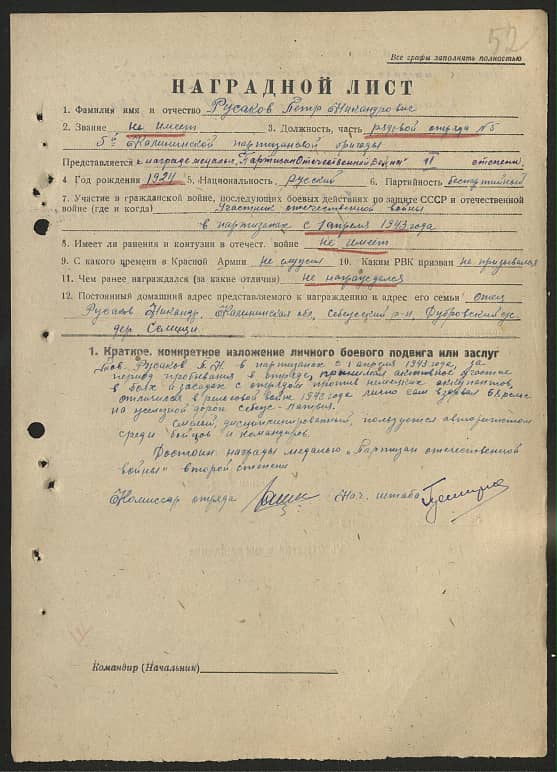 52
Все графы заполнять полностью
НАГРАДНОЙ ЛИСТ
1. Фамилия имя и отчество Русаков Петр Никандрович
2. Звание не имеет 3. Должность, часть рядовой отряда №5
5ой Калининской партизанской бригады
Представляется к награде медалью „Партизан Отечественной войны" II степени
4 Год рождения 1924 5. Национальность, Русский 6. Партийность беспартийный
7. Участие в гражданской войне, последующих боевых действиях по защите СССР и отечественной
войне (где и когда) Участник отечественной войны
в партизанах с 1 апреля 1943 года
8. Имеет ли ранения и контузии в отечест. войне не имеет
9. С какого времени в Красной Армии не служил 10. Каким РВК призван не призывался
11. Чем ранее награждался (за какие отличия) не награждался
12. Постоянный домашний адрес представляемого к награждению и адрес его семьи отец
Русаков Никандр, Калининская обл, Себежский р-н, Дубровский с/с
дер.
1. Краткое, конкретное изложение личного боевого подвига или заслуг
Тов. Русаков П.Н. в партизанах с 1 апреля 1943 года, за
период пребывания в отряде, принимал активное участие
в боях и засадах с отрядом против немецких оккупантов,
отличился в рельсовой войне 1943 года лично сам взорвал рельс
на железной дороге Себеж -
Смелый, дисциплинированный, пользуется авторитетом
среди бойцов и командиров.
Достоин награды медалью „Партизан отечественной
войны" второй степени
Комиссар отряда Нач. штаба
Командир (Начальник)